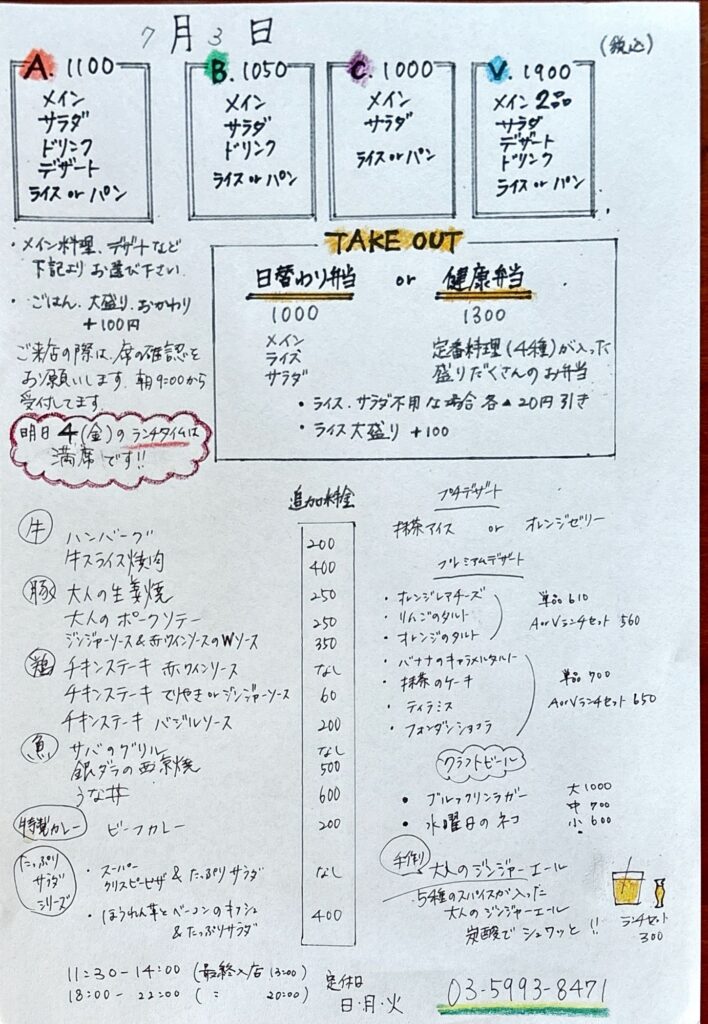 7月3日
(税込)
A. 1100
メイン
サラダ
ドリンク
デザート
ライス or パン
B. 1050
メイン
サラダ
ドリンク
ライス or パン
C. 1000
メイン
サラダ
ライス or パン
V. 1900
メイン 2品
サラダ
デザート
ドリンク
ライス or パン
・メイン料理、デザートなど
下記よりお選び下さい
・ごはん、大盛り、おかわり
+100円
ご来店の際は、席の確認を
お願いします。朝9:00から
受付してます。
明日 4(金)のランチタイムは
満席です!!
TAKE OUT
日替わり弁当 or 健康弁当
1000
メイン
ライス
サラダ
1300
定番料理(4種)が入った
盛りだくさんのお弁当
・ライス、サラダ不用な場合 各▲20円引き
・ライス大盛り +100
追加料金
牛
ハンバーグ 200
牛スライス焼肉 400
豚
大人の生姜焼 250
大人のポークソテー 250
ジンジャーソース&赤ワインソースのWソース 350
鶏
チキンステーキ 赤ワインソース なし
チキンステーキ てりやき or ジンジャーソース 60
チキンステーキ バジルソース 200
魚
サバのグリル なし
銀ダラの西京焼 500
うな丼 600
特製カレー ビーフカレー 200
たっぷり
サラダ
シリーズ
・スーパー
クリスピーピザ & たっぷりサラダ なし
・ほうれん草とベーコンのキッシュ 400
&たっぷりサラダ
プチデザート
抹茶アイス or オレンジゼリー
プレミアムデザート
・オレンジレアチーズ
・りんごのタルト
・オレンジのタルト
単品 610
A or V ランチセット 560
・バナナのキャラメルタルト
・抹茶のケーキ
・ティラミス
・フォンダンショコラ
単品 700
A or V ランチセット 650
クラフトビール
・ブルックリンラガー
・水曜日のネコ
大 1000
中 700
小 600
手作り 大人のジンジャーエール
5種のスパイスが入った
大人のジンジャーエール
炭酸で シュワッと!!
ランチセット
300
11:30-14:00 (最終入店 13:00)
18:00-22:00 ( 〃 20:00)
定休日
日・月・火
03-5993-8471